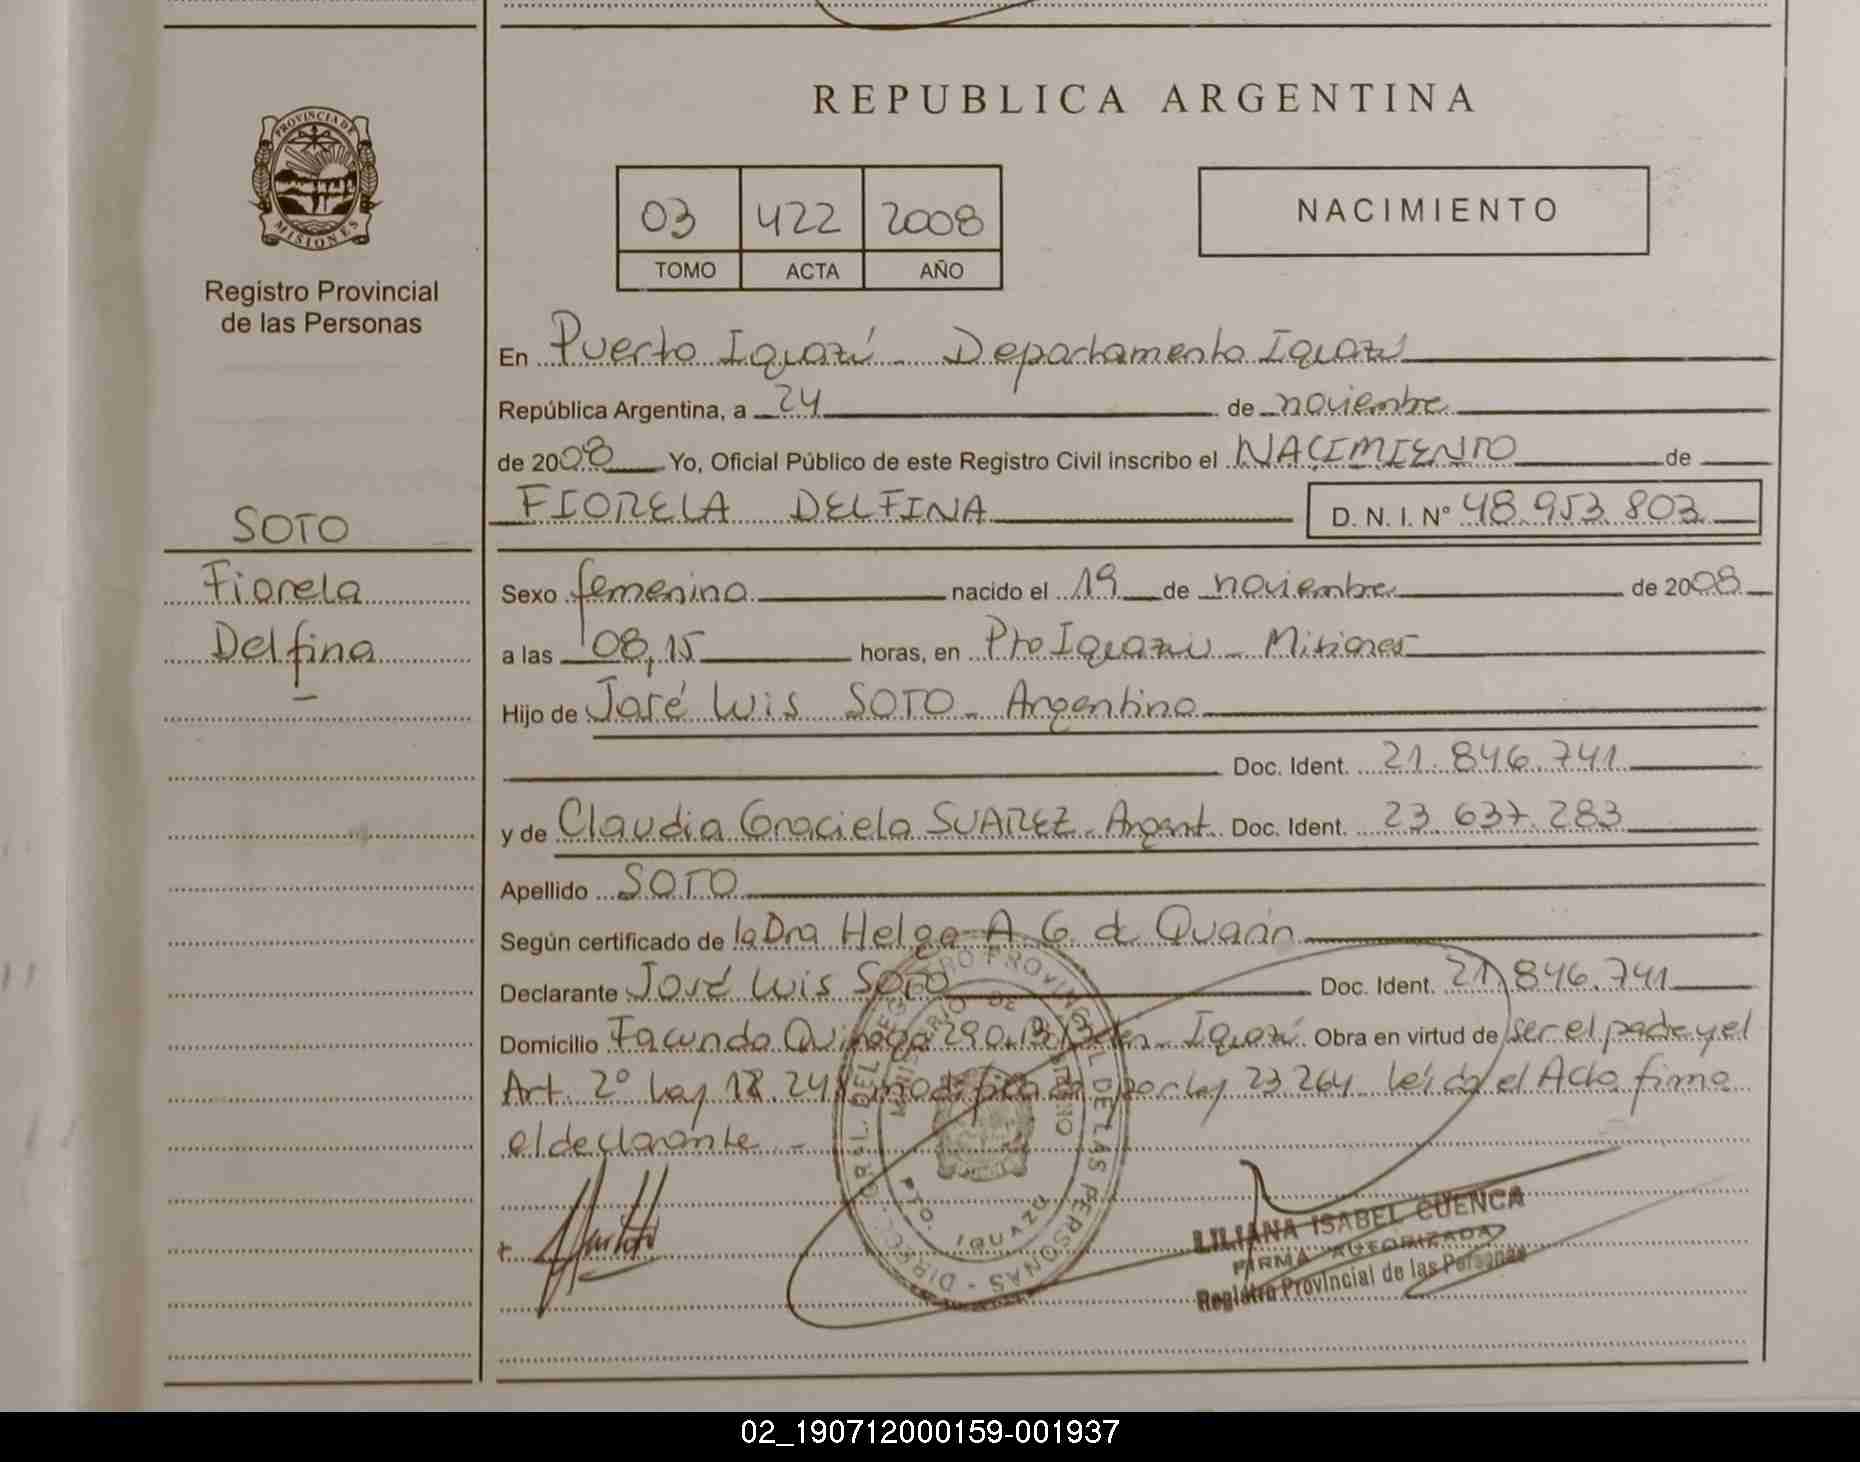 REPUBLICA ARGENTINA
PROVINCIA DE
MISIONES
Registro Provincial
de las Personas
03 422 2008
TOMO ACTA AÑO
NACIMIENTO
En Puerto Iguazú - Departamento Iguazú
República Argentina, a 24 de noviembre
de 2008 Yo, Oficial Público de este Registro Civil inscribo el NACIMIENTO de
FIORELA DELFINA D. N. I. N° 48.953.803
SOTO
Fiorela
Delfina
Sexo femenino nacido el 19 de noviembre de 2008
a las 08,15 horas, en Pto Iguazú - Misiones
Hijo de José Luis SOTO - Argentino
Doc. Ident. 21.846.741
y de Claudia Graciela SUAREZ - Argent. Doc. Ident. 23.637.283
Apellido SOTO
Según certificado de la Dra Helga A. G. de
Declarante José Luis SOTO Doc. Ident. 21.846.741
Domicilio Facundo Quiroga 290 - Iguazú Obra en virtud de ser el padre y el
Art. 2° Ley 18.248 modificada por ley 23.264 leída el Acta firma
el declarante -
DIRECC. GRAL. DEL REGISTRO PROVINCIAL DE LAS PERSONAS -
MINISTERIO DE GOBIERNO
PTO. IGUAZU
LILIANA ISABEL CUENCA
FIRMA AUTORIZADA
Registro Provincial de las Personas
02_190712000159-001937